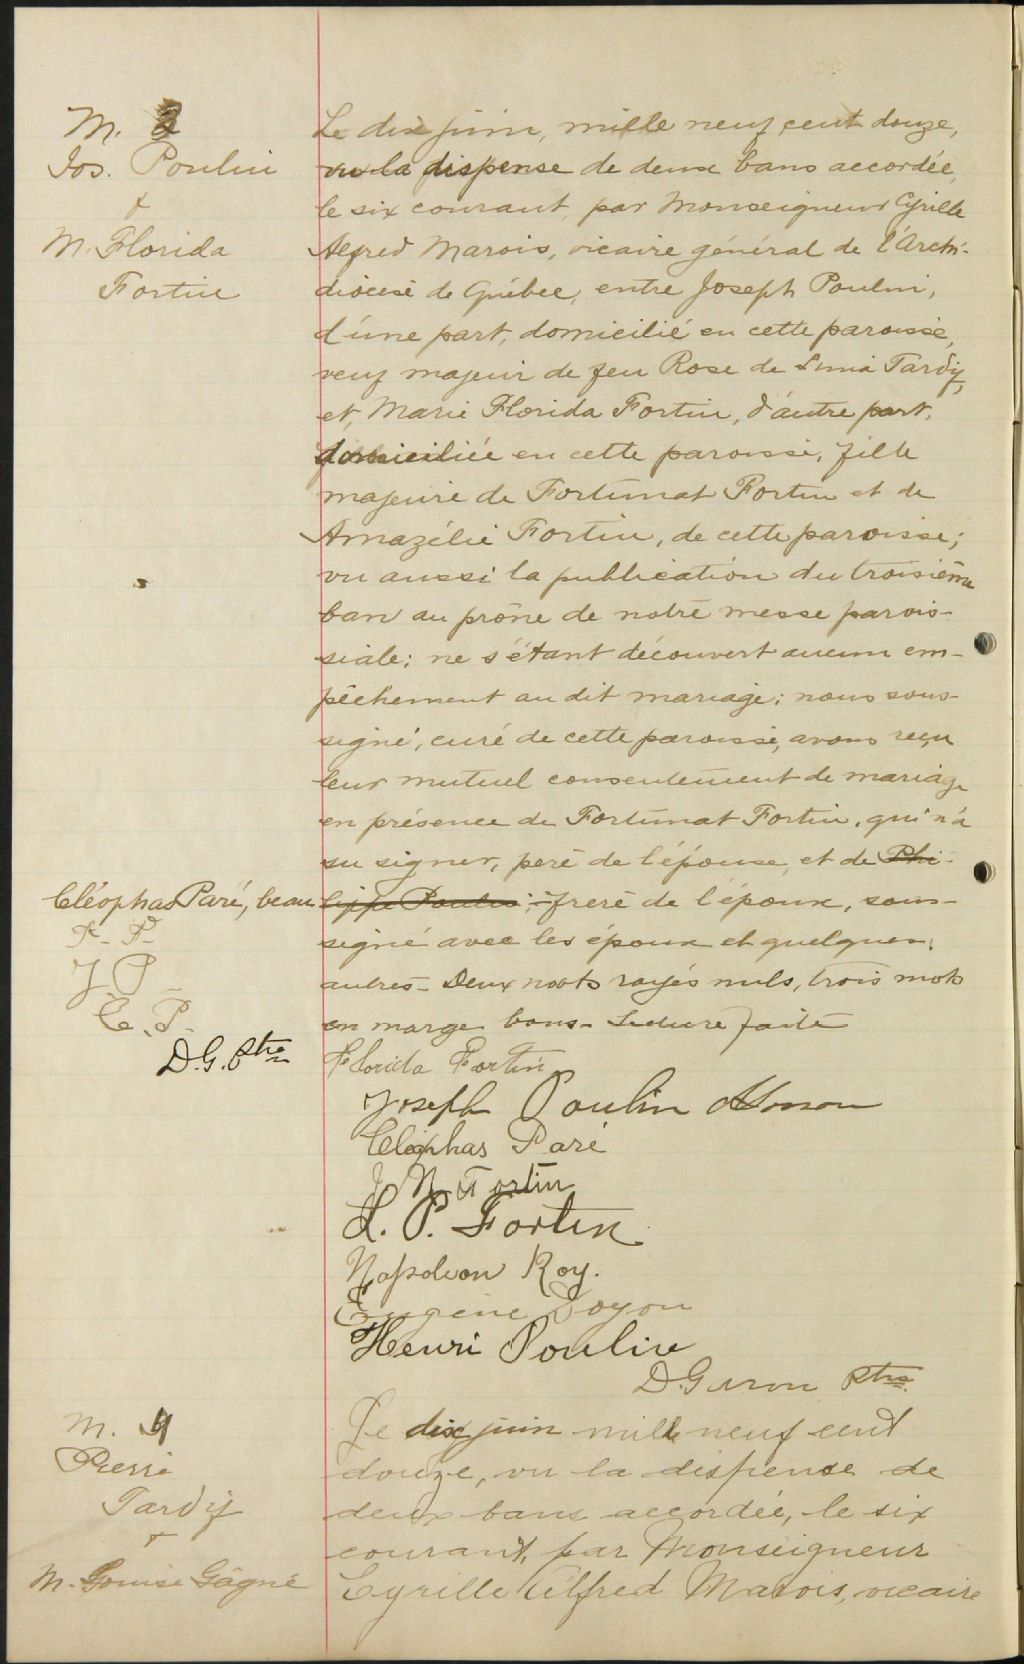 M. 8
Jos. Poulin
&
M. Florida
Fortin
Le dix juin, mille neuf cent douze,
vu la dispense de deux bans accordée,
le six courant, par Monseigneur Cyrille
Alfred Marois, vicaire général de l'Archi-
diocèse de Québec, entre Joseph Poulin,
d'une part, domicilié en cette paroisse,
veuf majeur de feu Rose de Lima Tardif,
et, Marie Florida Fortin, d'autre part,
domiciliée en cette paroisse, fille
majeure de Fortunat Fortin et de
Amazélie Fortin, de cette paroisse;
vu aussi la publication du troisième
ban au prône de notre messe parois-
siale; ne s'étant découvert aucun em-
pêchement au dit mariage; nous sous-
signé, curé de cette paroisse, avons reçu
leur mutuel consentement de mariage
en présence de Fortunat Fortin, qui n'a
su signer, père de l'épouse, et de Phi-
Cléophas Paré, beau
lippe Poulin, - frère de l'époux, sous-
signé avec les époux et quelques
autres - Deux mots rayés nuls, trois mots
en marge bons - Lecture faite
F. P.
J P
C. P.
D.G. Ptre
Florida Fortin
Joseph Poulin
Cléophas Paré
J N Fortin
L. P. Fortin
Napoleon Roy.
Eugène Doyon
Henri Poulin
D. Garon Ptre.
M. 9
Pierre
Tardif
&
M. Louise Gagné
Le dix juin mille neuf cent
douze, vu la dispense de
deux bans accordée, le six
courant, par Monseigneur
Cyrille Alfred Marois, vicaire